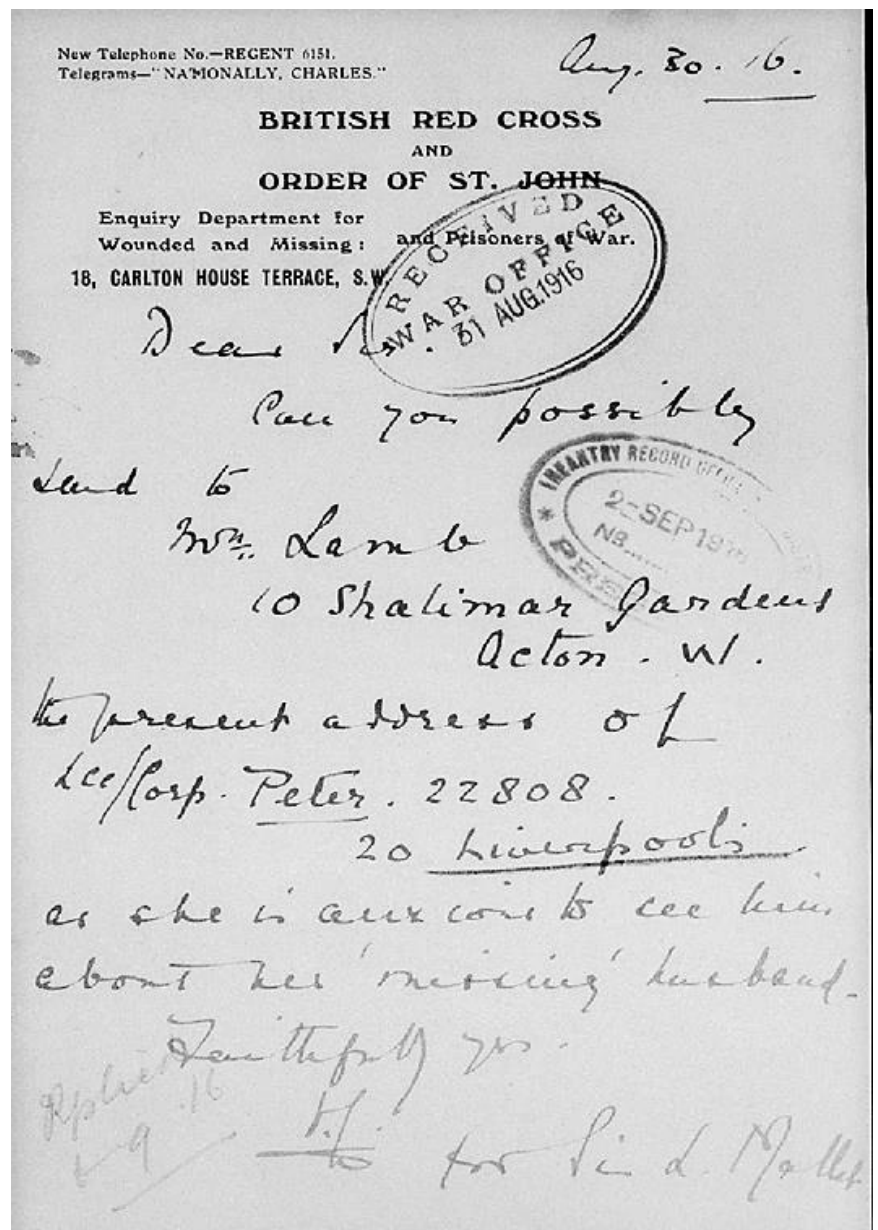 New Telephone No.—REGENT 6151.
Telegrams—"NATIONALLY, CHARLES."
Aug. 30. 16.
BRITISH RED CROSS
AND
ORDER OF ST. JOHN
Enquiry Department for
Wounded and Missing: and Prisoners of War.
18, CARLTON HOUSE TERRACE, S.W.
RECEIVED
WAR OFFICE
31 AUG.1916
Dear Sir
Can you possibly
send to
INFANTRY RECORD OFFICE
2-SEP 1916
No.
PRE
Mrs. Lamb
10 Shalimar Gardens
Acton. W.
the present address of
Lce/Corp. Peter. 22808.
20 Liverpools
as she is anxious to see him
about her 'missing' husband.
Faithfully yrs.
Replied
9 16
for Sir L. Mallet